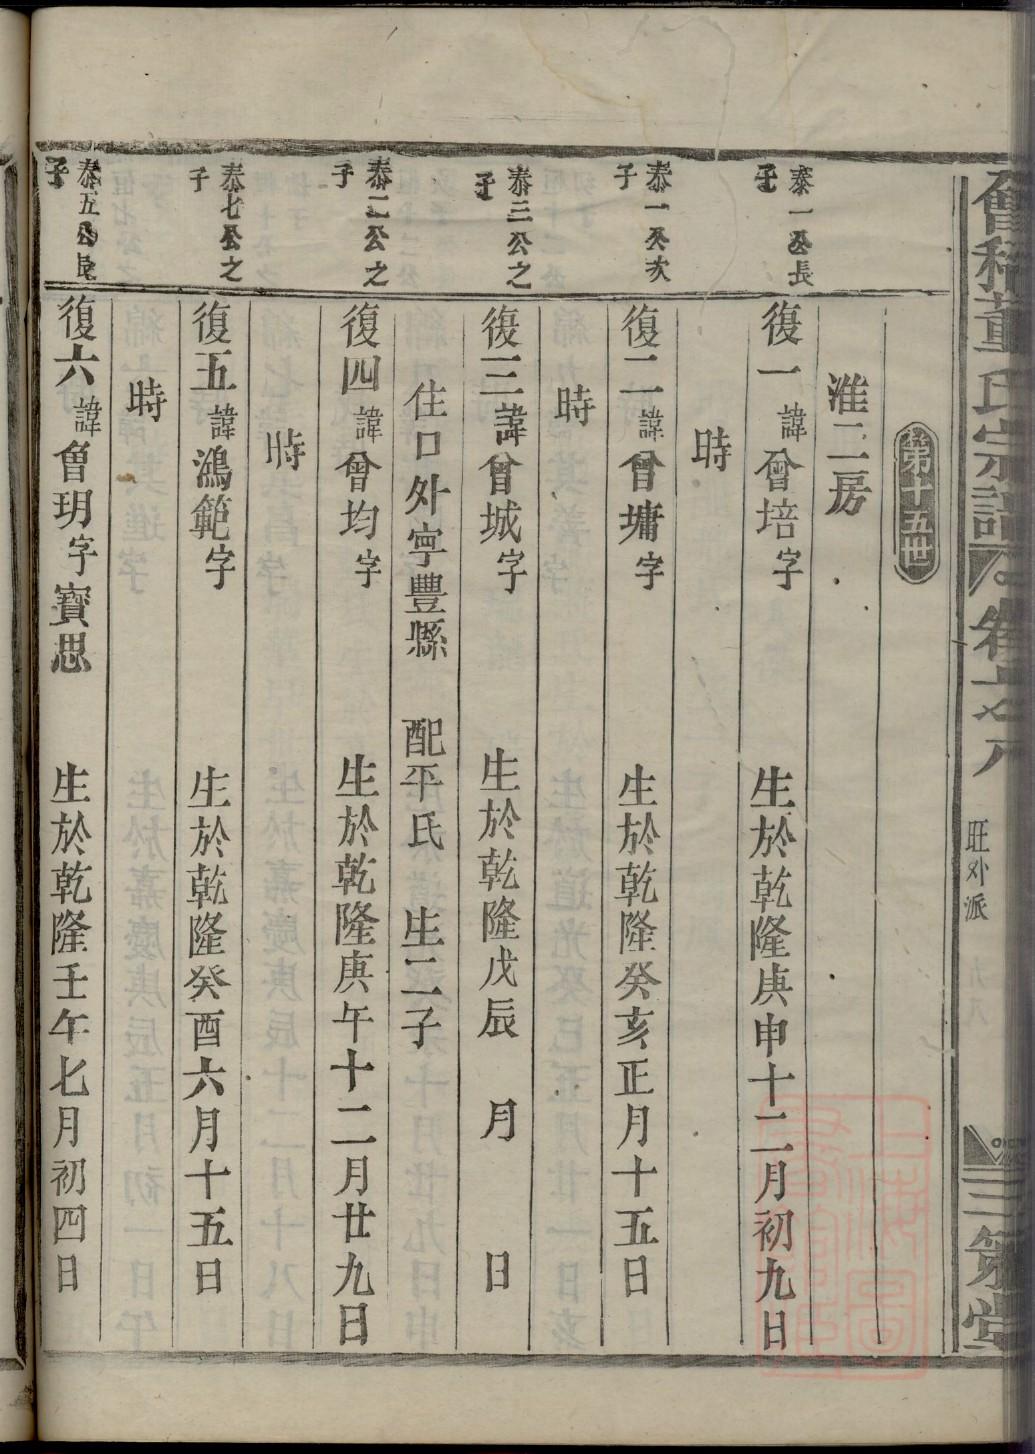 會稽董氏宗譜
卷十之八
旺外派
三策堂
第十五世
淮二房
泰一公長子
復一諱曾培字 生於乾隆庚申十二月初九日
時
泰一公次子
復二諱曾墉字 生於乾隆癸亥正月十五日
時
泰三公之子
復三諱曾城字 生於乾隆戊辰 月 日
住口外寧豐縣 配平氏 生二子
泰二公之子
復四諱曾均字 生於乾隆庚午十二月廿九日
時
泰七公之子
復五諱鴻範字 生於乾隆癸酉六月十五日
時
泰五公長子
復六諱曾玥字寶思 生於乾隆壬午七月初四日